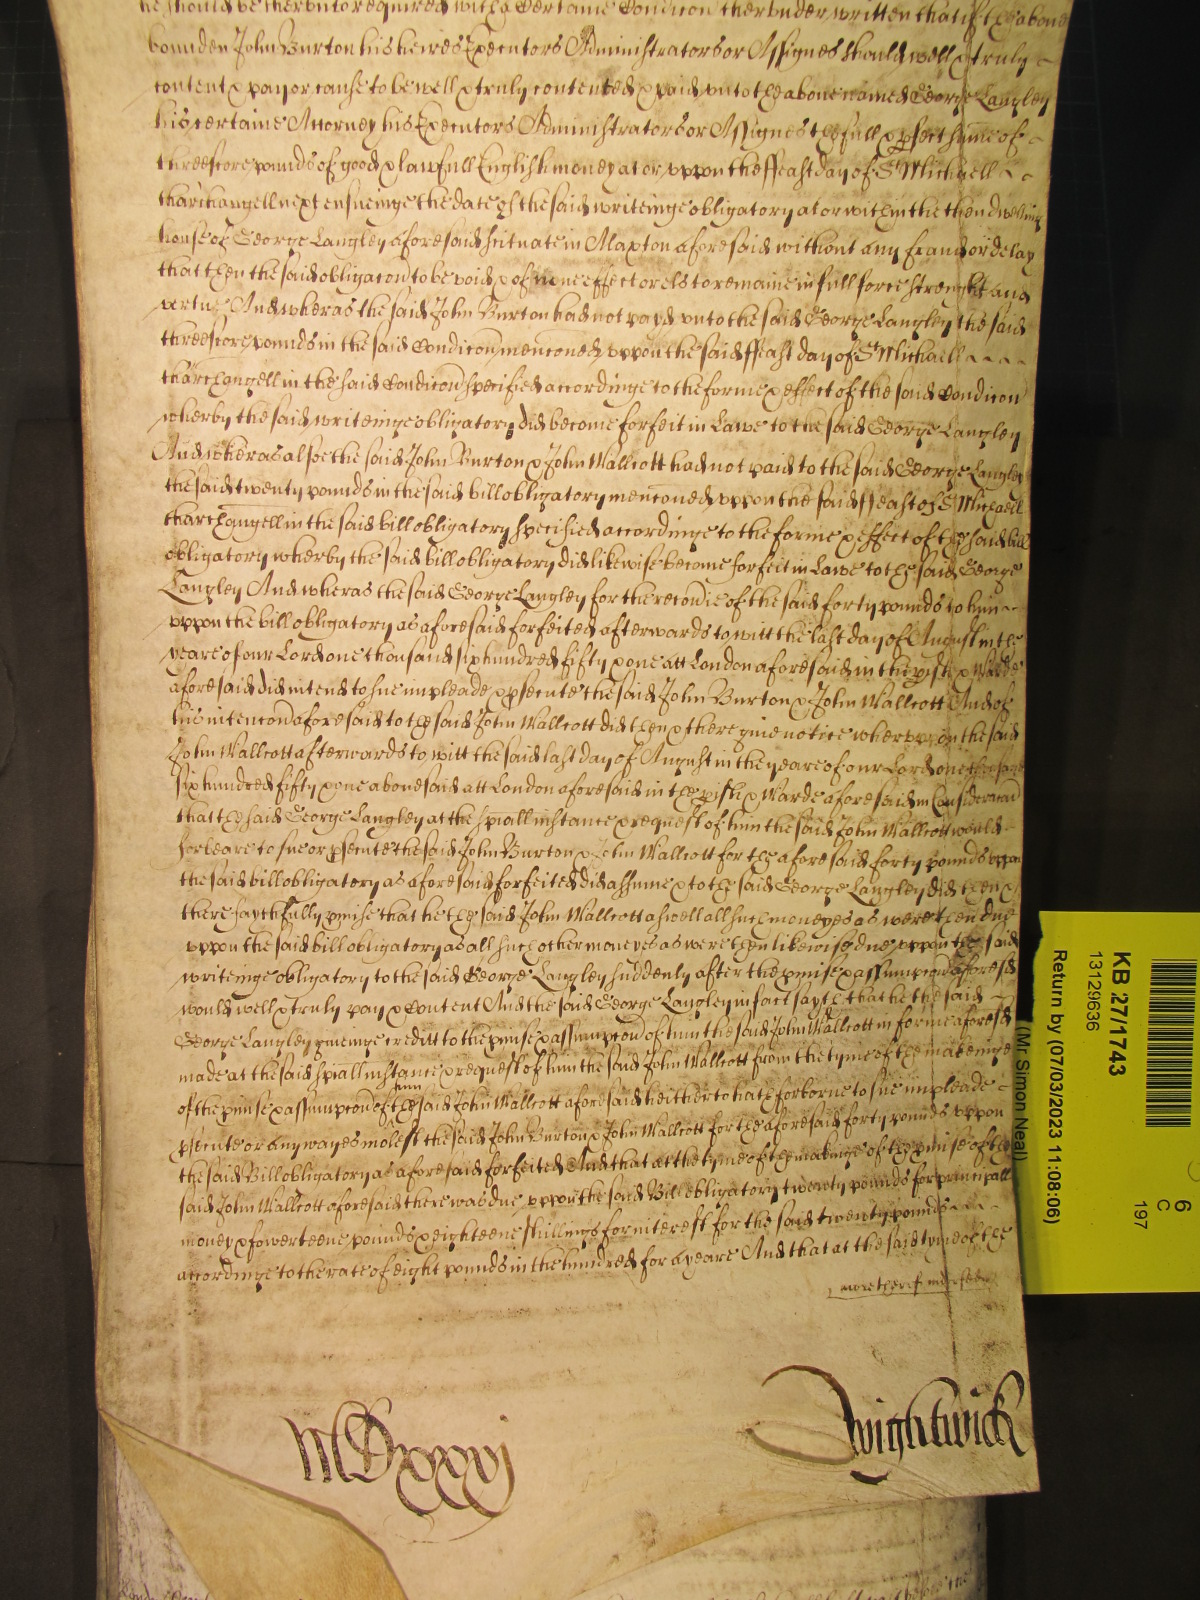 he should be therunto required with a Certaine Condicon therunder written that if the above
bounden John Burton his heires Executors Administrators or Assignes should well & truly
content & pay or cause to be well & truly contented & paid unto the above named George Langley
his certaine Attorney his Executors Administrators or Assignes the full & pfect sume of
threescore pounds of good & lawfull English money at or uppon the ffeast day of St Michaell
tharchangell next ensueinge the date of the said writeinge obligatory at or within the then dwelling
house of George Langley aforesaid scituate in Maxton aforesaid without any fraud or delay
that then the said obligacon to be void & of none effect or els to remaine in full force strenght and
vertue And wheras the said John Burton had not payd unto the said George Langley the said
threescore pounds in the said Condicon menconed uppon the said ffeast day of St Michaell
tharchangell in the said Condicon specified accordinge to the forme & effect of the said Condicon
wherby the said writeinge obligatory did become forfeit in Lawe to the said George Langley
And wheras alsoe the said John Burton & John Wallcott had not paid to the said George Langley
the said twenty pounds in the said bill obligatory menconed uppon the said ffeast of St Michaell
tharchangell in the said bill obligatory specified accordinge to the forme & effect of the said bill
obligatory wherby the said bill obligatory did likewise become forfeit in Lawe to the said George
Langley And wheras the said George Langley for the recovie of the said forty pounds to him
uppon the bill obligatory as aforesaid forfeited afterwards to witt the last day of August in the
yeare of our Lord one thousand six hundred fifty & one att London aforesaid in the pish & Warde
aforesaid did intend to sue impleade & psecute the said John Burton & John Wallcott And of
his intencon aforesaid to the said John Wallcott did then & there give notice wheruppon the said
John Wallcott afterwards to witt the said last day of August in the yeare of our Lord one thousand
six hundred fifty & one abovesaid att London aforesaid in the pish & Warde aforesaid in Consideracon
that the said George Langley at the spiall instance & request of him the said John Wallcott would
forbeare to sue or psecute the said John Burton & John Wallcott for the aforesaid forty pounds uppon
the said bill obligatory as aforesaid forfeited did assume & to the said George Langley did then &
there faythfully pmise that he the said John Wallcott aswell all such moneyes as were then due
uppon the said bill obligatory as all such other moneyes as were then likewise due uppon the said
writeinge obligatory to the said George Langley suddenly after the pmise & assumpcon aforesd
would well & truly pay & content And the said George Langley in fact sayth that he the said
George Langley giveinge creditt to the pmise & assumpcon of him the said John Wallcott in forme aforesd
made at the said spiall instance & request of him the said John Wallcott from the tyme of the makeinge
of the pmise & assumpcon of him the said John Wallcott aforesaid heitherto hath forborne to sue impleade
psecute or any wayes molest the said John Burton & John Wallcott for the aforesaid forty pounds uppon
the said Bill obligatory as aforesaid forfeited And that at the tyme of the makinge of the pmise of the
said John Wallcott aforesaid there was due uppon the said Bill obligatory twenty pounds for principall
money & fowerteene pounds & eighteene shillings for interest for the said twenty pounds
accordinge to the rate of eight pounds in the hundred for a yeare And that at the said tyme of the
more therof
MDxxxvj
Wightwick
KB 27/1743
13129636
Return by (07/03/2023 11:08:06)
(Mr Simon Neal)
6
C
197